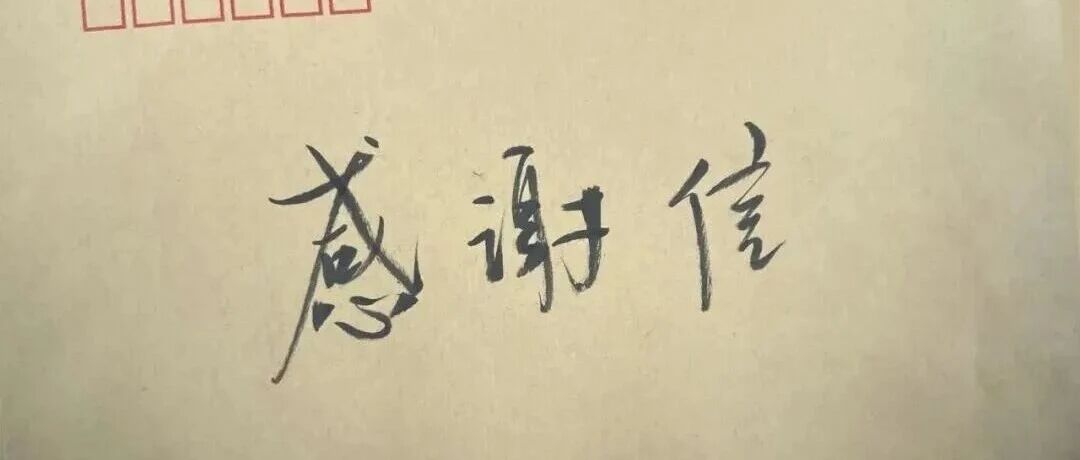 感谢信